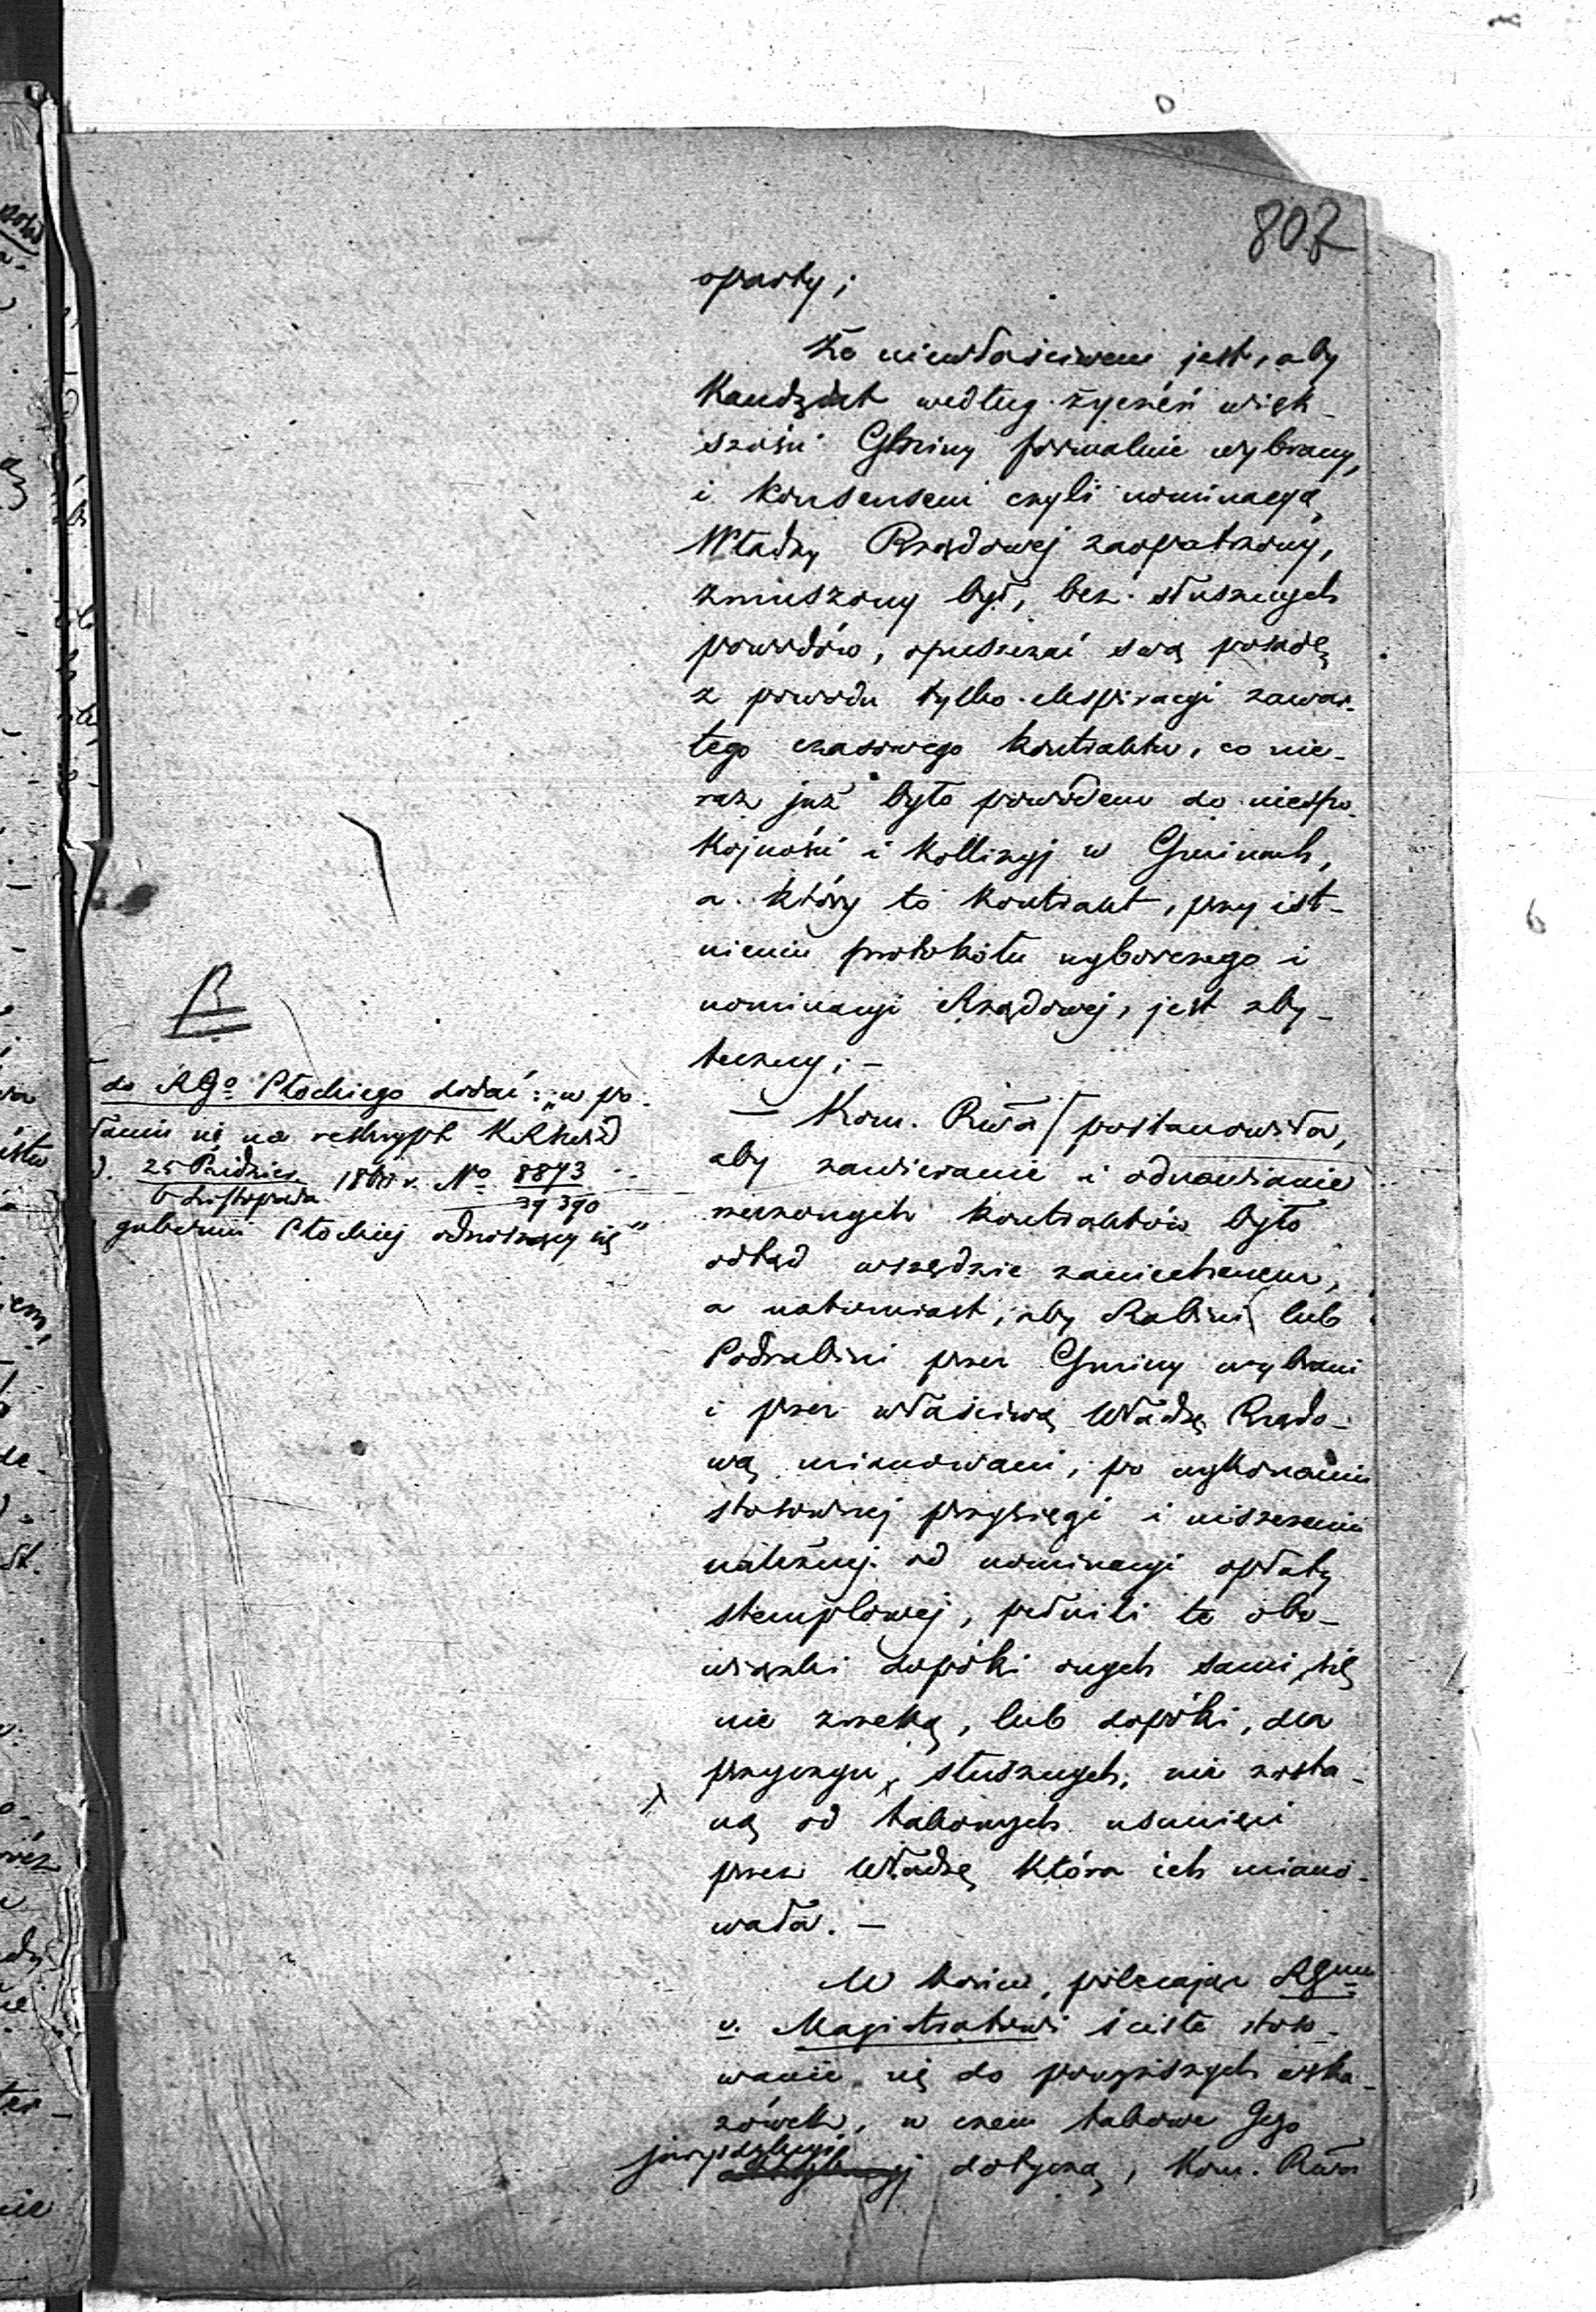 807
oparty;
Że niewłaściwem jest, aby
Kandydat według życzeń więk-
szości Gminy formalnie wybrany,
i konsensem czyli nominacyą
Władzy Rządowej zaopatrzony,
zmuszony był, bez słusznych
powodów, opuszczać swą posadę
z powodu tylko expiracyi zawar-
tego czasowego kontraktu, co nie-
raz już było powodem do niespo-
kojności i kollizyj w Gminach,
a który to kontrakt, przy ist-
nieniu protokółu wyborczego i
nominacyi Rządowej, jest zby-
teczny; –
– Kom. Rwa postanowiła,
aby zawieranie i odnawianie
rzeczonych kontraktów było
odtąd wszędzie zaniechanem,
a natomiast, aby Rabini lub
Podrabini przez Gminy wybrani
i przez właściwą Władzę Rządo-
wą mianowani, po wykonaniu
stosownej przysięgi i uiszczeniu
należnej od nominacyi opłaty
stemplowej, pełnili te obo-
wiązki dopóki onych sami się
nie zrzeką, lub dopóki, dla
przyczyn słusznych, nie zosta-
ną od takowych usunięci
przez Władzę która ich miano-
wała. –
W końcu, polecając RGmu
v. Magistratowi ścisłe stoso-
wanie się do powyższych wska-
zówek, w czem takowe Jego
jurysdykcyi dotyczą, Kom. Rwa
B
do RGo Płockiego dodać: "w po-
łaniu się na reskrypt
d. 25 Paździer. / 6 Listopada 1860 r. No 8873 / 39390
gubernii Płockiej odnoszący się"